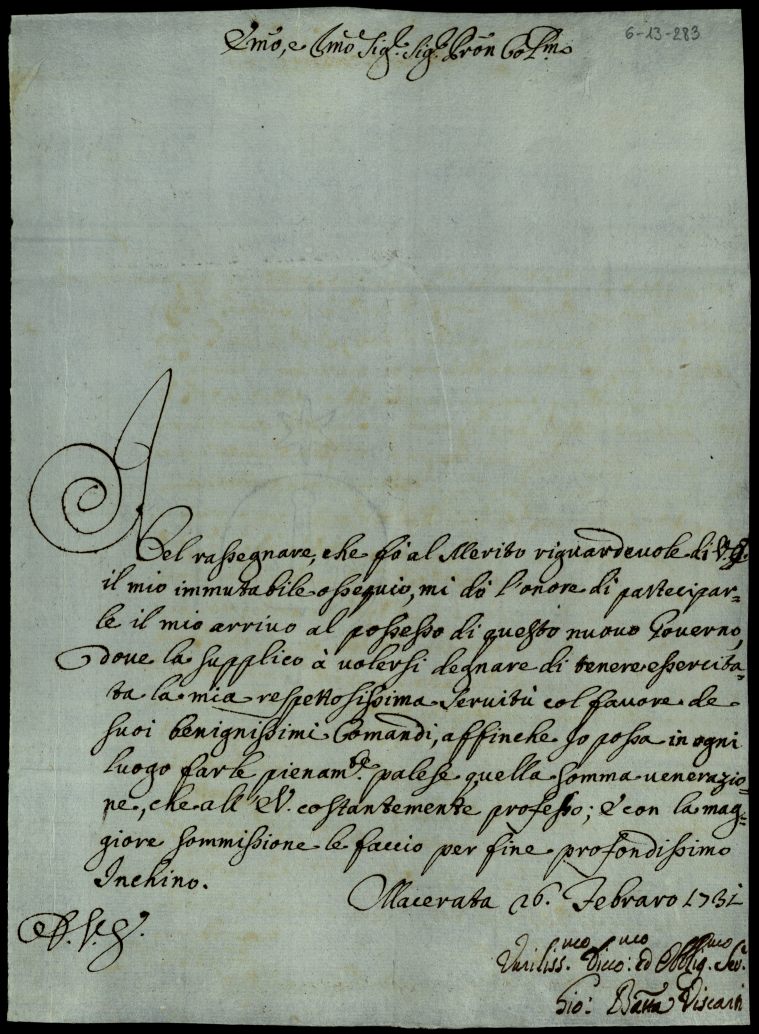 Emo, e Rmo Sig.r Sig.r Pron Colmo
6-13-283
Nel rassegnare, che fò al Merito riguardevole di V.E.
il mio immutabile ossequio, mi dò l'onore di partecipar=
le il mio arrivo al possesso di questo nuovo Governo,
dove la supplico à volersi degnare di tenere essercita=
ta la mia respettosissima Servitù col favore de
suoi benignissimi Comandi, affinche Io possa in ogni
luogo farle pienam.te palese quella somma venerazio=
ne, che all' E.V. costantemente professo; E con la mag=
giore sommissione le faccio per fine profondissimo
Inchino.
Macerata 26. Febraro 1731
Umiliss.mo Divo.mo ed Obblig.mo Ser.e
Gio: Batta